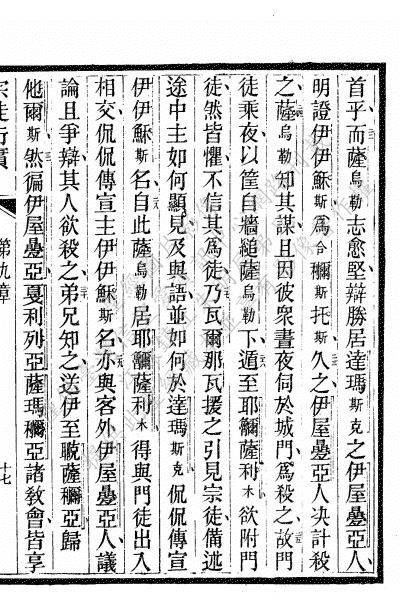 首乎而薩烏勒志愈堅辯勝居達瑪斯克之伊屋疉亞人
明證伊伊穌斯爲合穪斯托斯久之伊屋疉亞人决計殺
之薩烏勒知其謀且因彼衆晝夜伺於城門爲殺之故門
徒乘夜以筐自牆縋薩烏勒下遁至耶爾薩利木欲附門
徒然皆懼不信其爲徒乃瓦爾那瓦援之引見宗徒備述
途中主如何顯見及與語並如何於達瑪斯克侃侃傳宣
伊伊穌斯名自此薩烏勒居耶爾薩利木得與門徒出入
相交侃侃傳宣主伊伊穌斯名亦與客外伊屋疉亞人議
論且爭辯其人欲殺之弟兄知之送伊至㪇薩穪亞歸
他爾斯然徧伊屋疉亞戛利列亞薩瑪穪亞諸敎會皆享
宗徒行實
第九章
十七